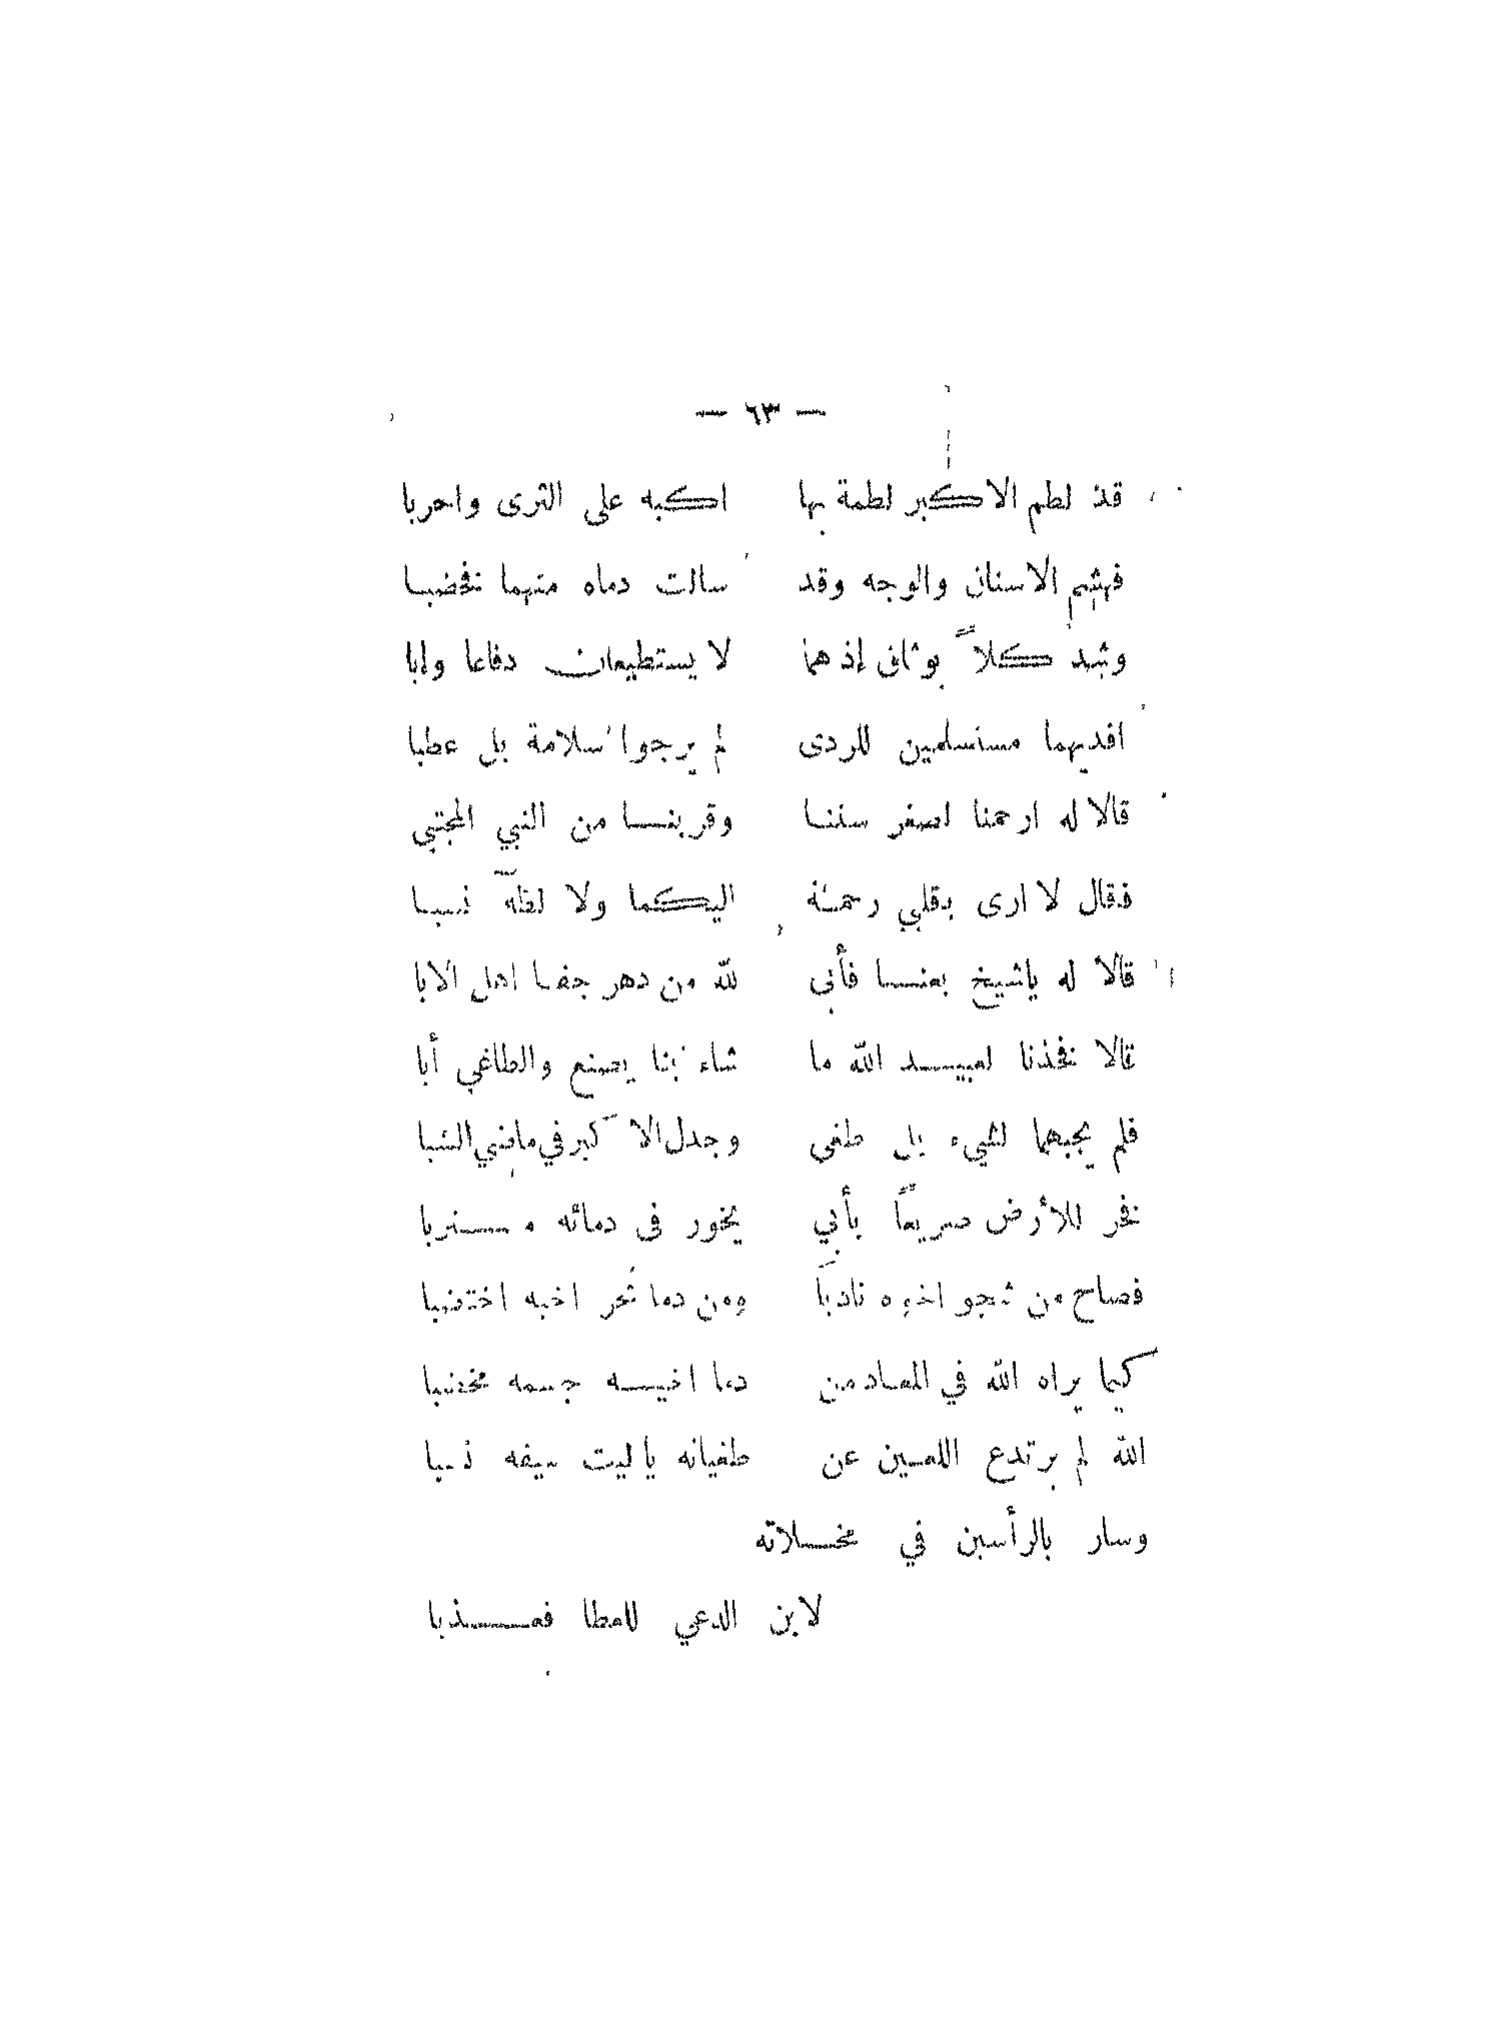 — ٦٣ —
قد لطم الاكبر لطمة بها اكبه على الثرى واحربا
فهشم الاسنان والوجه وقد سالت دماه منهما فخضبا
وشد كلاً بوثاق إذ هما لا يستطيعان دفاعا وإبا
افديهما مستسلمين للردى لم يرجوا سلامة بل عطبا
قالا له ارحمنا لصغر سننا وقربنا من النبي المجتبى
فقال لا ارى بقلبي رحمة اليكما ولا لطه نسبا
قالا له ياشيخ بعنا فأبى لله من دهر جفا اهل الابا
قالا فخذنا لعبيد الله ما شاء بنا يصنع والطاغي أبا
فلم يجبهما لشيء بل طغى وجدل الاكبر في ماضي الشبا
فخر للأرض صريعاً بأبي يخور في دمائه متربا
فصاح من شجو اخوه نادباً ومن دما نحر اخيه اختضبا
كيما يراه الله في المعاد من دما اخيه جسمه مخضبا
الله لم يرتدع اللعين عن طغيانه ياليت سيفه نبا
وسار بالرأسين في مخلاته
لابن الدعي للعطا فعذبا